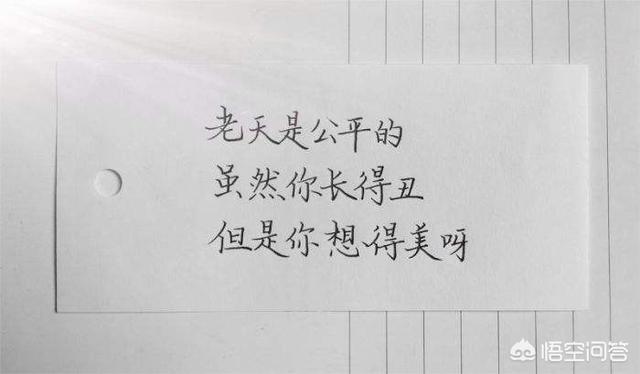 老天是公平的
虽然你长得丑
但是你想得美呀
悟空问答